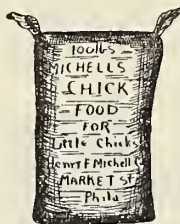 100lbs
MICHELLS
CHICK
FOOD
FOR
Little Chicks
Henry F Michell Co
MARKET St
Phila